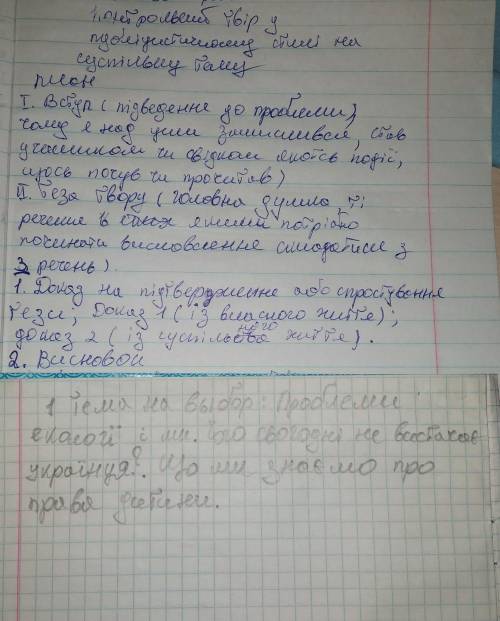 Контрольний твір у
публіцистичному стилі на
суспільну тему
План
I. Вступ (підведення до проблеми,
чому я над цим замислився, став
учасником чи свідком якоїсь події,
щось почув чи прочитав)
II. Теза твору (головна думка, ті
речення в яких потрібно
починати висловлення складатися з
3 речень).
1. Доказ на підтвердження або спростування
тези; Доказ 1 (із власного життя);
доказ 2 (із суспільного життя).
2. Висновок
1 тема на выбор: Проблеми
екології і ми. Чого сьогодні не вистачає
українця?. Що ми знаємо про
права дитини.